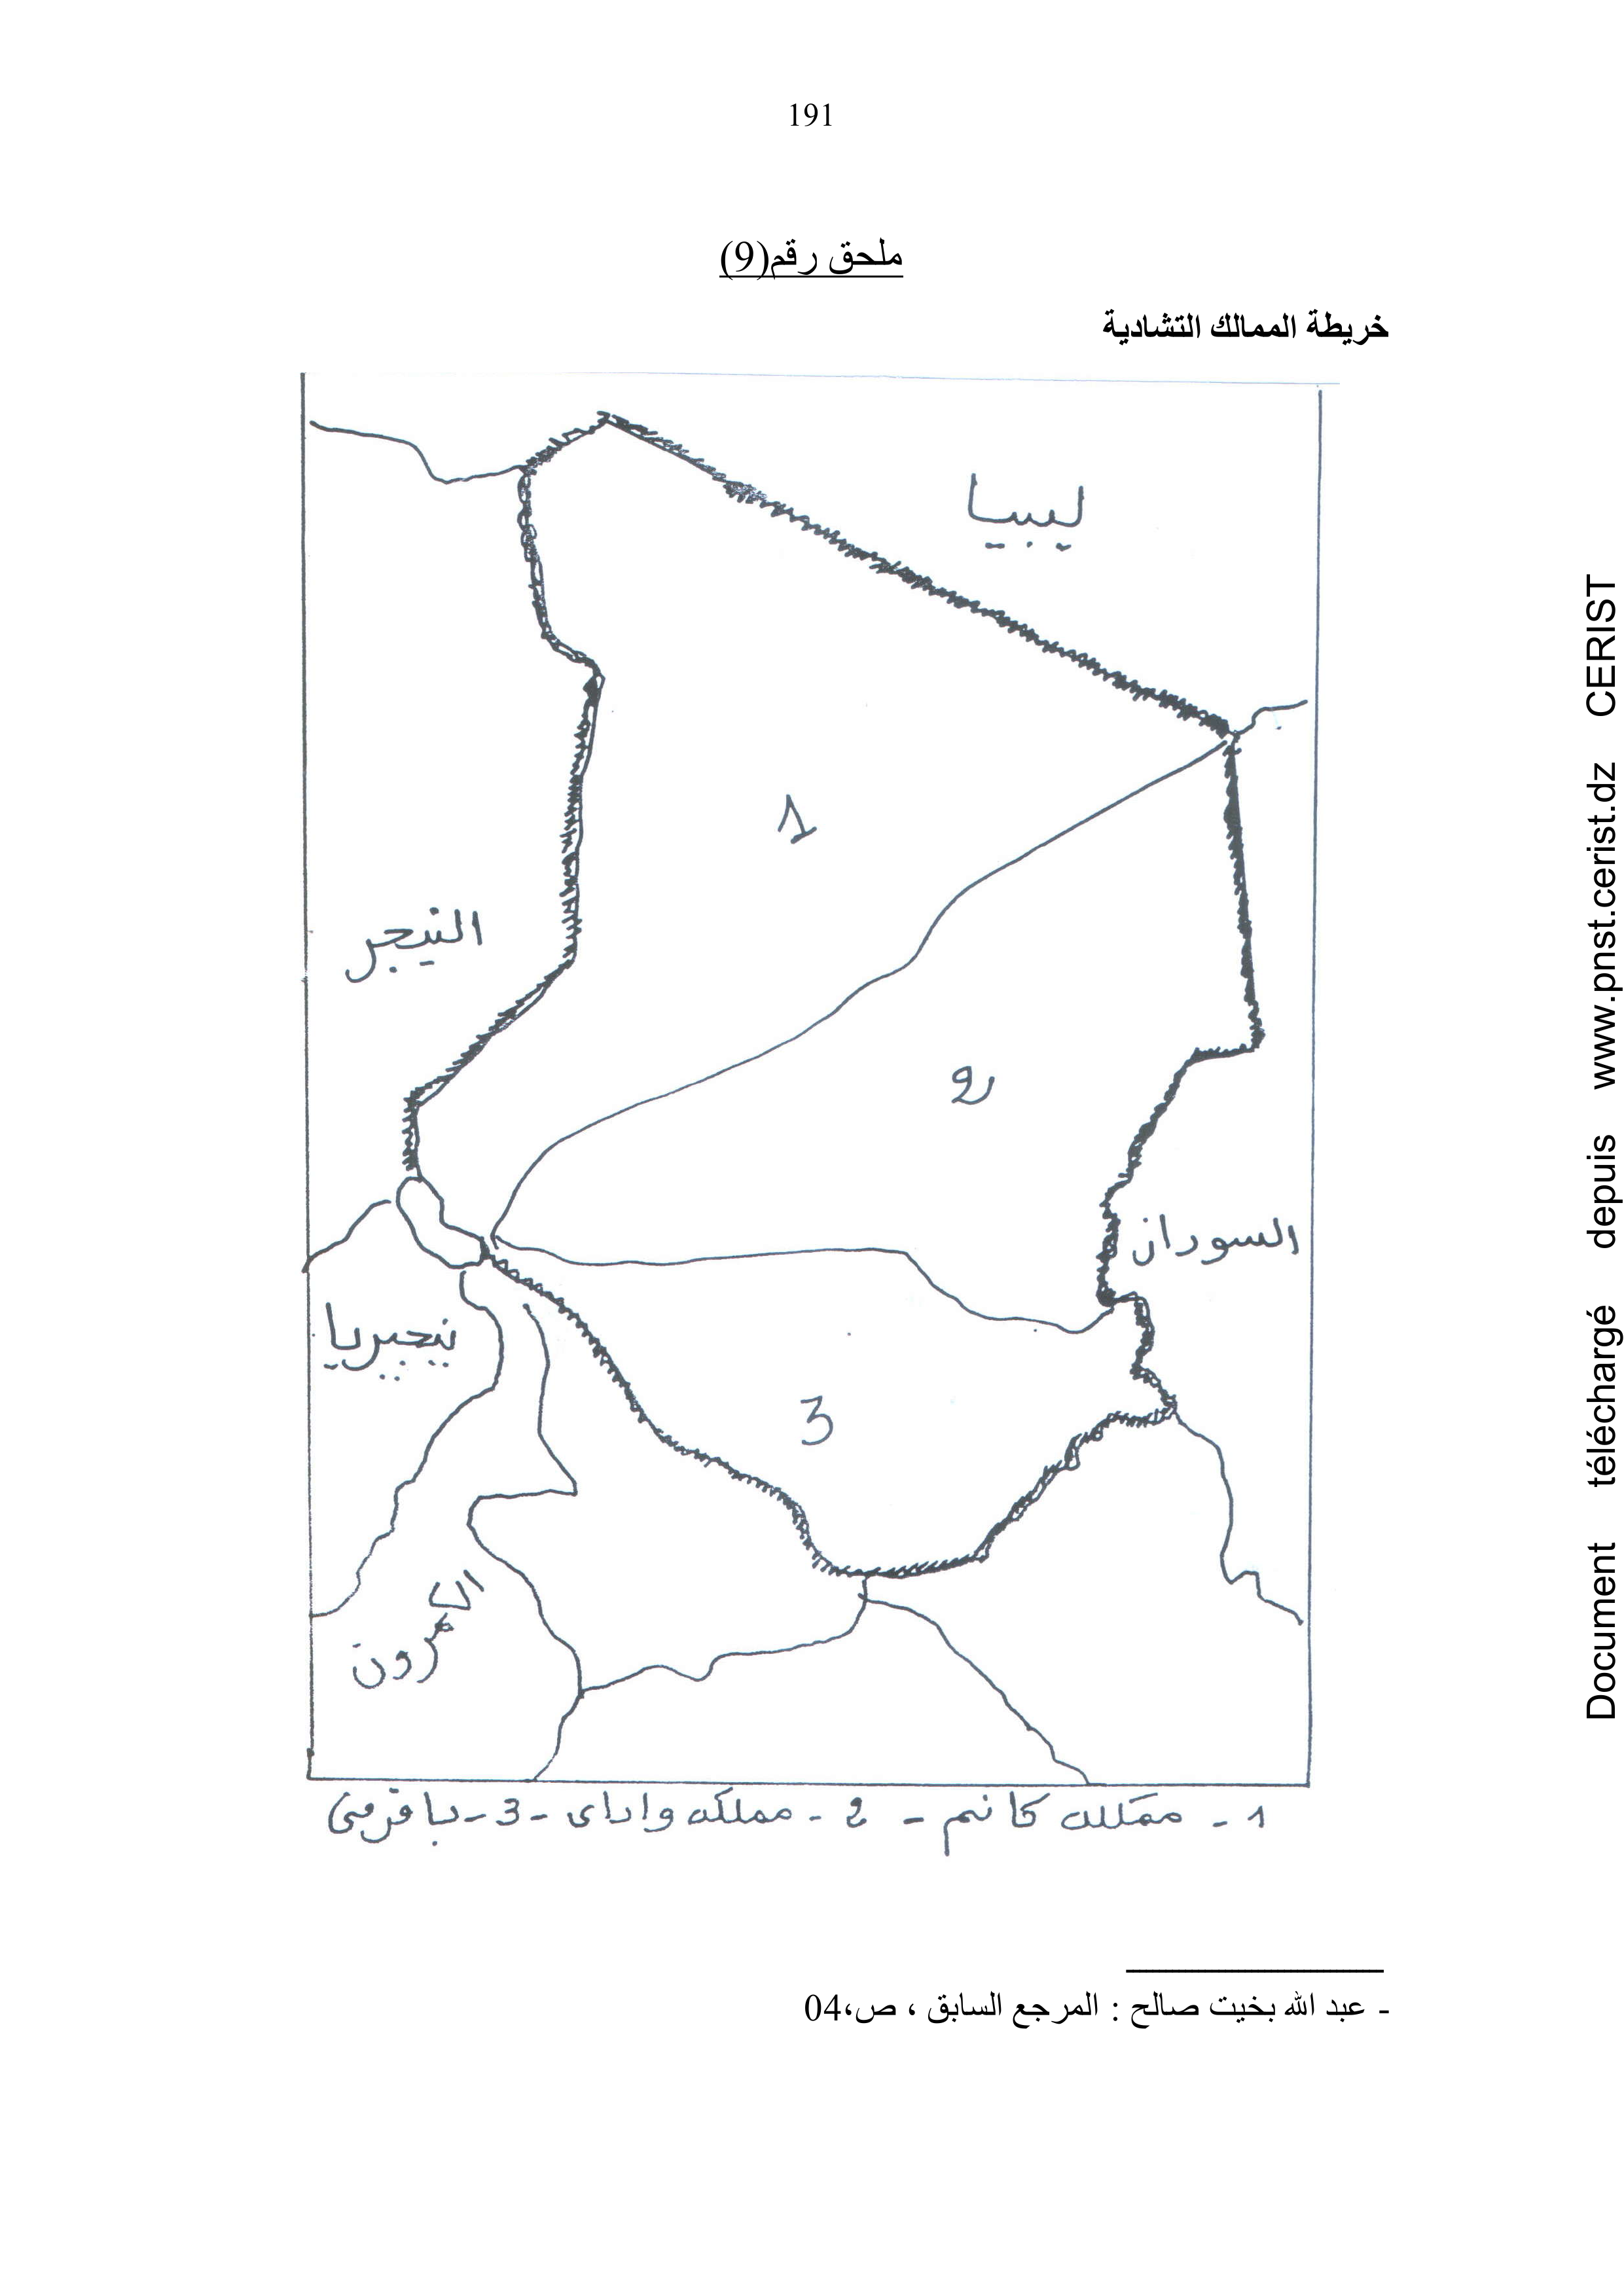 191
ملحق رقم(9)
خريطة الممالك التشادية
ليبيا
1
النيجر
2
السودان
نيجيريا
3
الكمرون
1 - مملكة كانم - 2 - مملكة واداي - 3 - باقرمي
- عبد الله بخيت صالح : المرجع السابق ، ص،04
Document téléchargé depuis www.pnst.cerist.dz CERIST